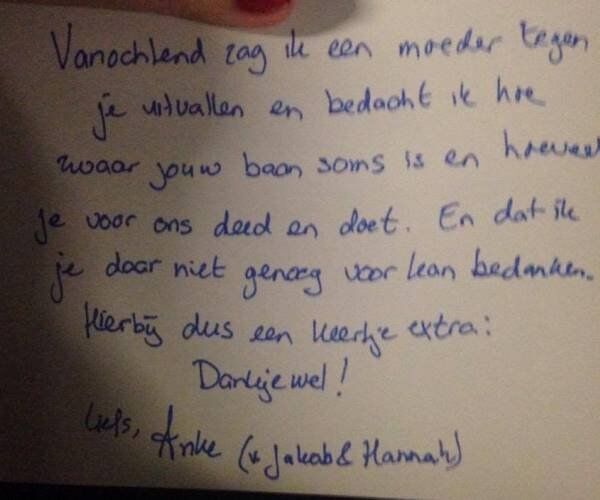 Vanochtend zag ik een moeder tegen
je uitvallen en bedacht ik hoe
zwaar jouw baan soms is en hoeveel
je voor ons deed en doet. En dat ik
je daar niet genoeg voor kan bedanken.
Hierbij dus een keertje extra:
Dankjewel!
Liefs, Anke (v Jakob & Hannah)